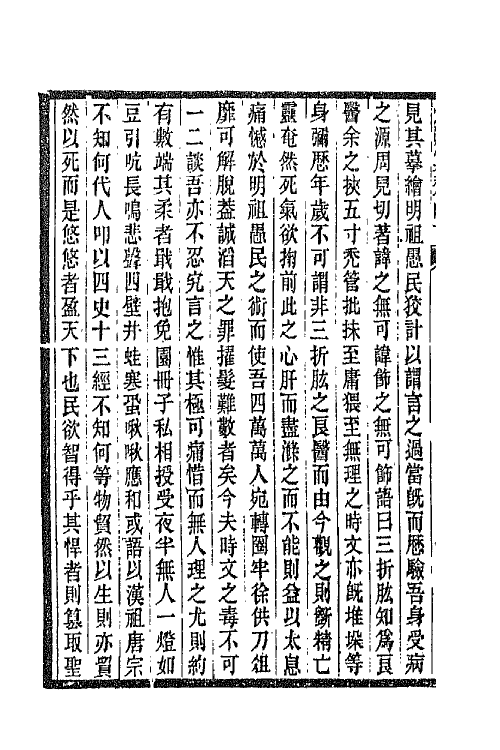 見其摹繪明祖愚民狡計以謂言之過當旣而歷驗吾身受病
之源周見切著諱之無可諱飾之無可飾語曰三折肱知爲良
醫余之挾五寸禿管批抹至庸猥至無理之時文亦旣堆垛等
身彌歷年歲不可謂非三折肱之良醫而由今觀之則斵精亡
靈奄然死氣欲掬前此之心肝而盡滌之而不能則益以太息
痛憾於明祖愚民之術而使吾四萬萬人宛轉圈牢徐供刀俎
靡可解脫蓋誠滔天之罪擢髮難數者矣今夫時文之毒不可
一二談吾亦不忍究言之惟其極可痛惜而無人理之尤則約
有數端其柔者戢戢抱兔園冊子私相授受夜半無人一燈如
豆引吭長鳴悲聲四壁井蛙寒蛩啾啾應和或語以漢祖唐宗
不知何代人叩以四史十三經不知何等物貿然以生則亦貿
然以死而是悠悠者盈天下也民欲智得乎其悍者則篡取聖